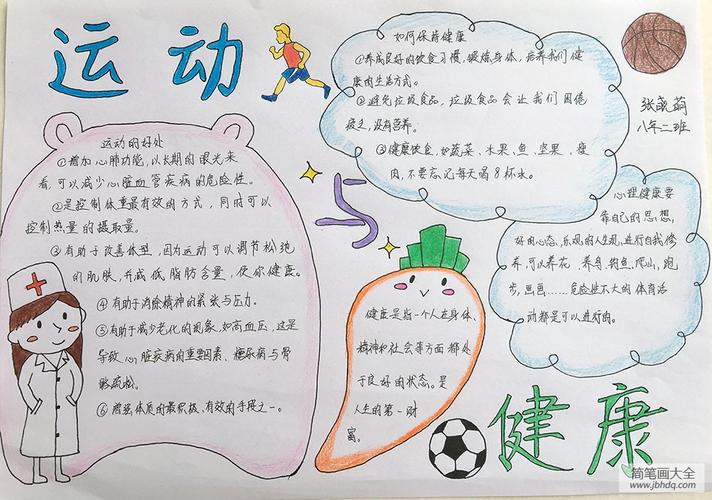 运动
与
健康
运动的好处
①增加心肺功能,以长期的眼光来
看,可以减少心脏血管疾病的危险性。
②是控制体重最有效的方式,同时可以
控制热量的摄取量。
③有助于改善体型,因为运动可以调节松弛
的肌肤,并减低脂肪含量,使你健康。
④有助于消除精神的紧张与压力。
⑤有助于减少老化的现象,如高血压,这是
导致心脏疾病的重要因素、糖尿病与骨
骼疏松。
⑥增强体质的最积极、有效的手段之一。
如何保持健康
①养成良好的饮食习惯,锻炼身体,培养我们健
康的生活方式。
②避免垃圾食品,垃圾食品会让我们困倦
疲乏,没有营养。
③健康饮食,如蔬菜、水果、鱼、坚果、瘦
肉,不要忘记每天喝8杯水。
张
八年二班
心理健康要
靠自己的思想,
好的心态、乐观的人生观,进行自我修
养,可以养花、养鸟、钓鱼、爬山、跑
步、画画……危险性不大的体育活
动都是可以进行的。
健康是指一个人在身体、
精神和社会等方面都处
于良好的状态。是
人生的第一财
富。
简笔画大全
www.jbhdq.com